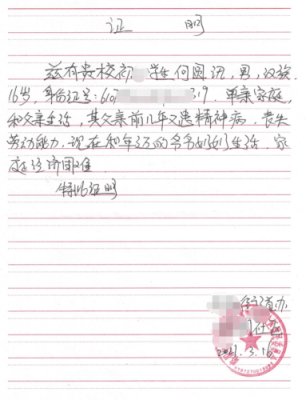 证 明
兹有贵校初 学生何图讯,男,汉族,
16岁,身份证号:610 319.单亲家庭,
和父亲生活,其父亲前几年又患精神病,丧失
劳动能力,现在和年迈的爷爷奶奶生活.家
庭经济困难.
特此证明
街道办
2011.3.16